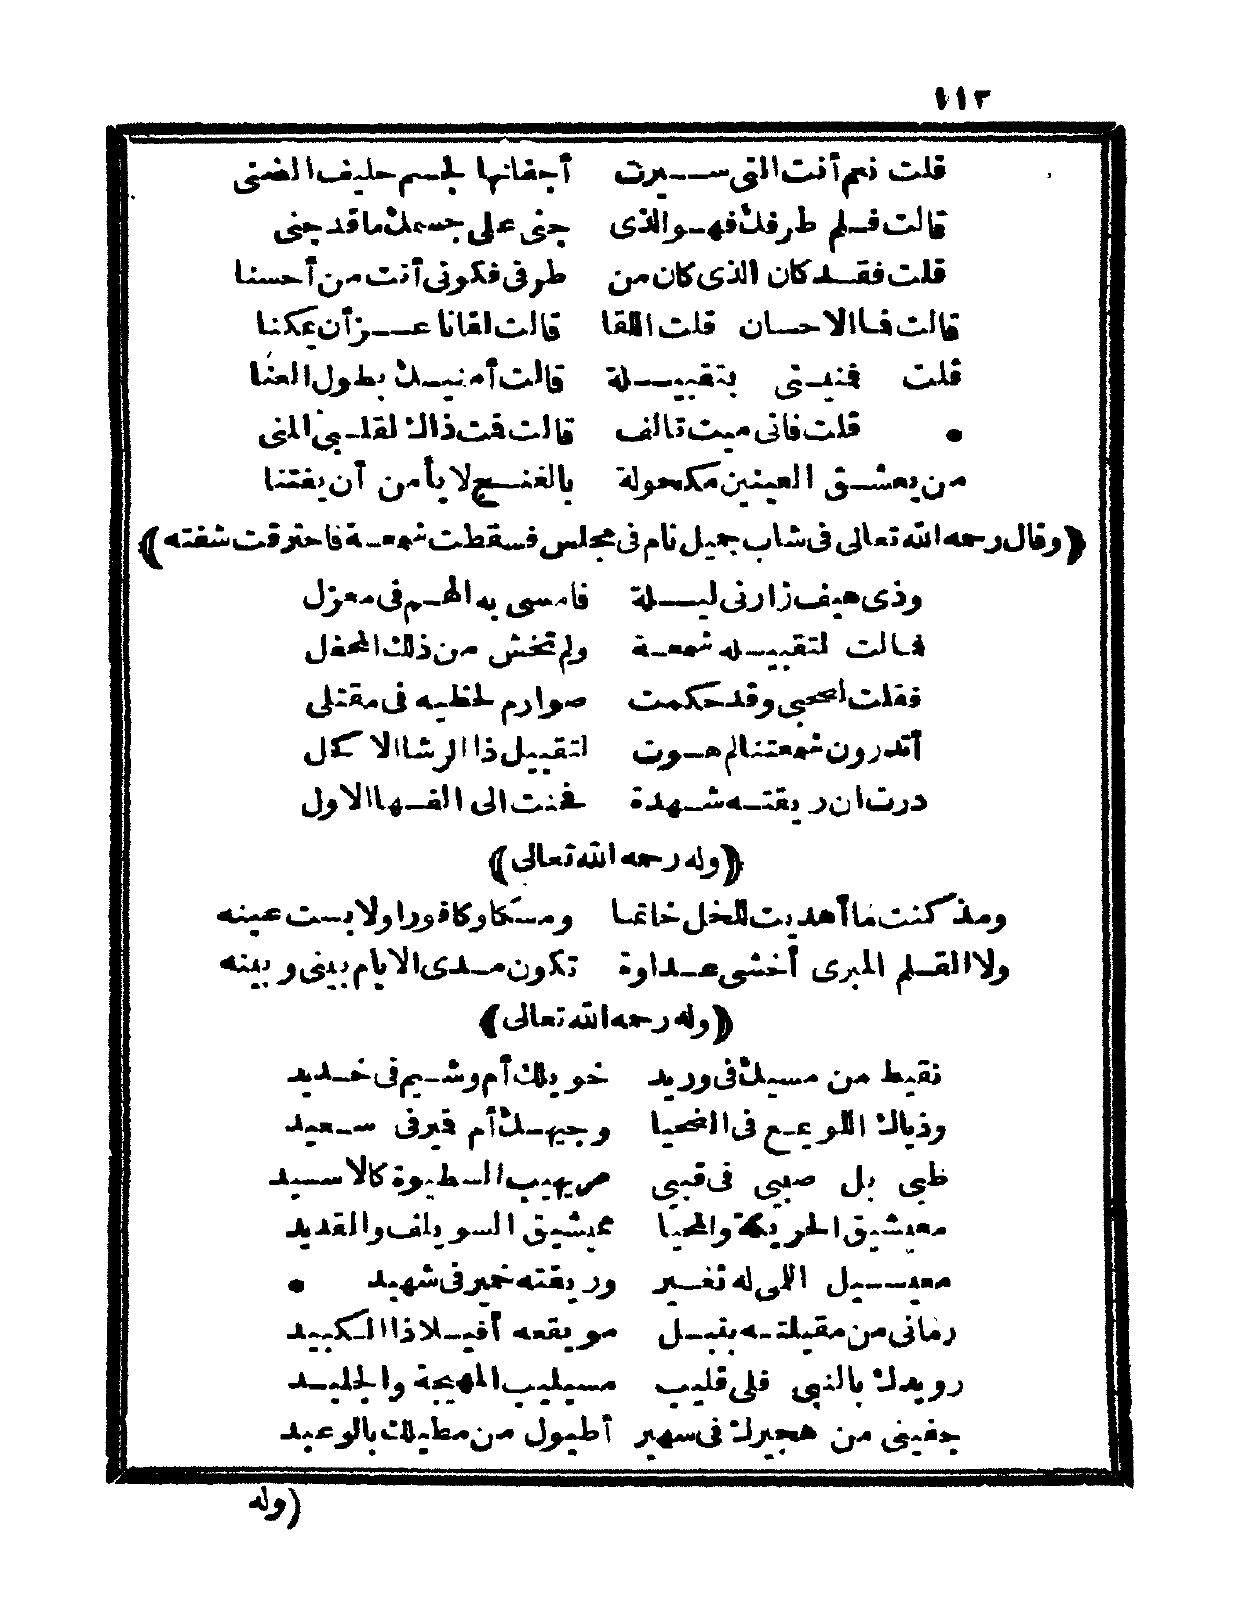 ١١٢
قلت نعم أنت التى سيرت أجفانها لجسم حليف الضنى
قالت فلم طرفك فهو الذى جنى على جسمك ما قد جنى
قلت فقد كان الذى كان من طرفى فكونى أنت من أحسنا
قالت فما الاحسان قلت اللقا قالت لقانا عز أن يمكنا
قلت فنيتى بتقبيلة قالت أمنيك بطول العنا
• قلت فانى ميت تالف قالت فت ذاك لقلبى المنى
من يعشق العينين مكحولة بالغنج لا يأمن أن يفتنا
(وقال رحمه الله تعالى فى شاب جميل نام فى مجلس فسقطت شمعة فاحترقت شفته)
وذى هيف زارنى ليلة فامسى به الهم فى معزل
فمالت لتقبيله شمعة ولم تخش من ذلك المحفل
فقلت لصحبى وقد حكمت صوارم لحظيه فى مقتلى
أتدرون شمعتنا لم هوت لتقبيل ذا الرشا الاكمل
درت ان ريقته شهدة فحنت الى الفها الاول
(وله رحمه الله تعالى)
ومذ كنت ما أهديت للخل خاتما ومسكا وكافورا ولا بست عينه
ولا القلم المبرى أخشى عداوة تكون مدى الايام بينى وبينه
(وله رحمه الله تعالى)
نقيط من مسيك فى وريد خويلك أم وشيم فى خديد
وذياك اللويمع فى الضحيا وجيهك أم قير فى سعيد
ظبى بل صبى فى قبى مريهيب السطيوة كالاسيد
معيشيق الحريكة والمحيا مميشيق السويلف والقديد
معيسيل اللمى له ثغير وريقته خمير فى شهيد •
رمانى من مقيلته بنبيل مويقعه أفيلاذ الكبيد
رويدك بالنبى فلى قليب مسيليب المهيجة والجليد
جفينى من هجيرك فى سهير أطيول من مطيلك بالوعيد
(وله